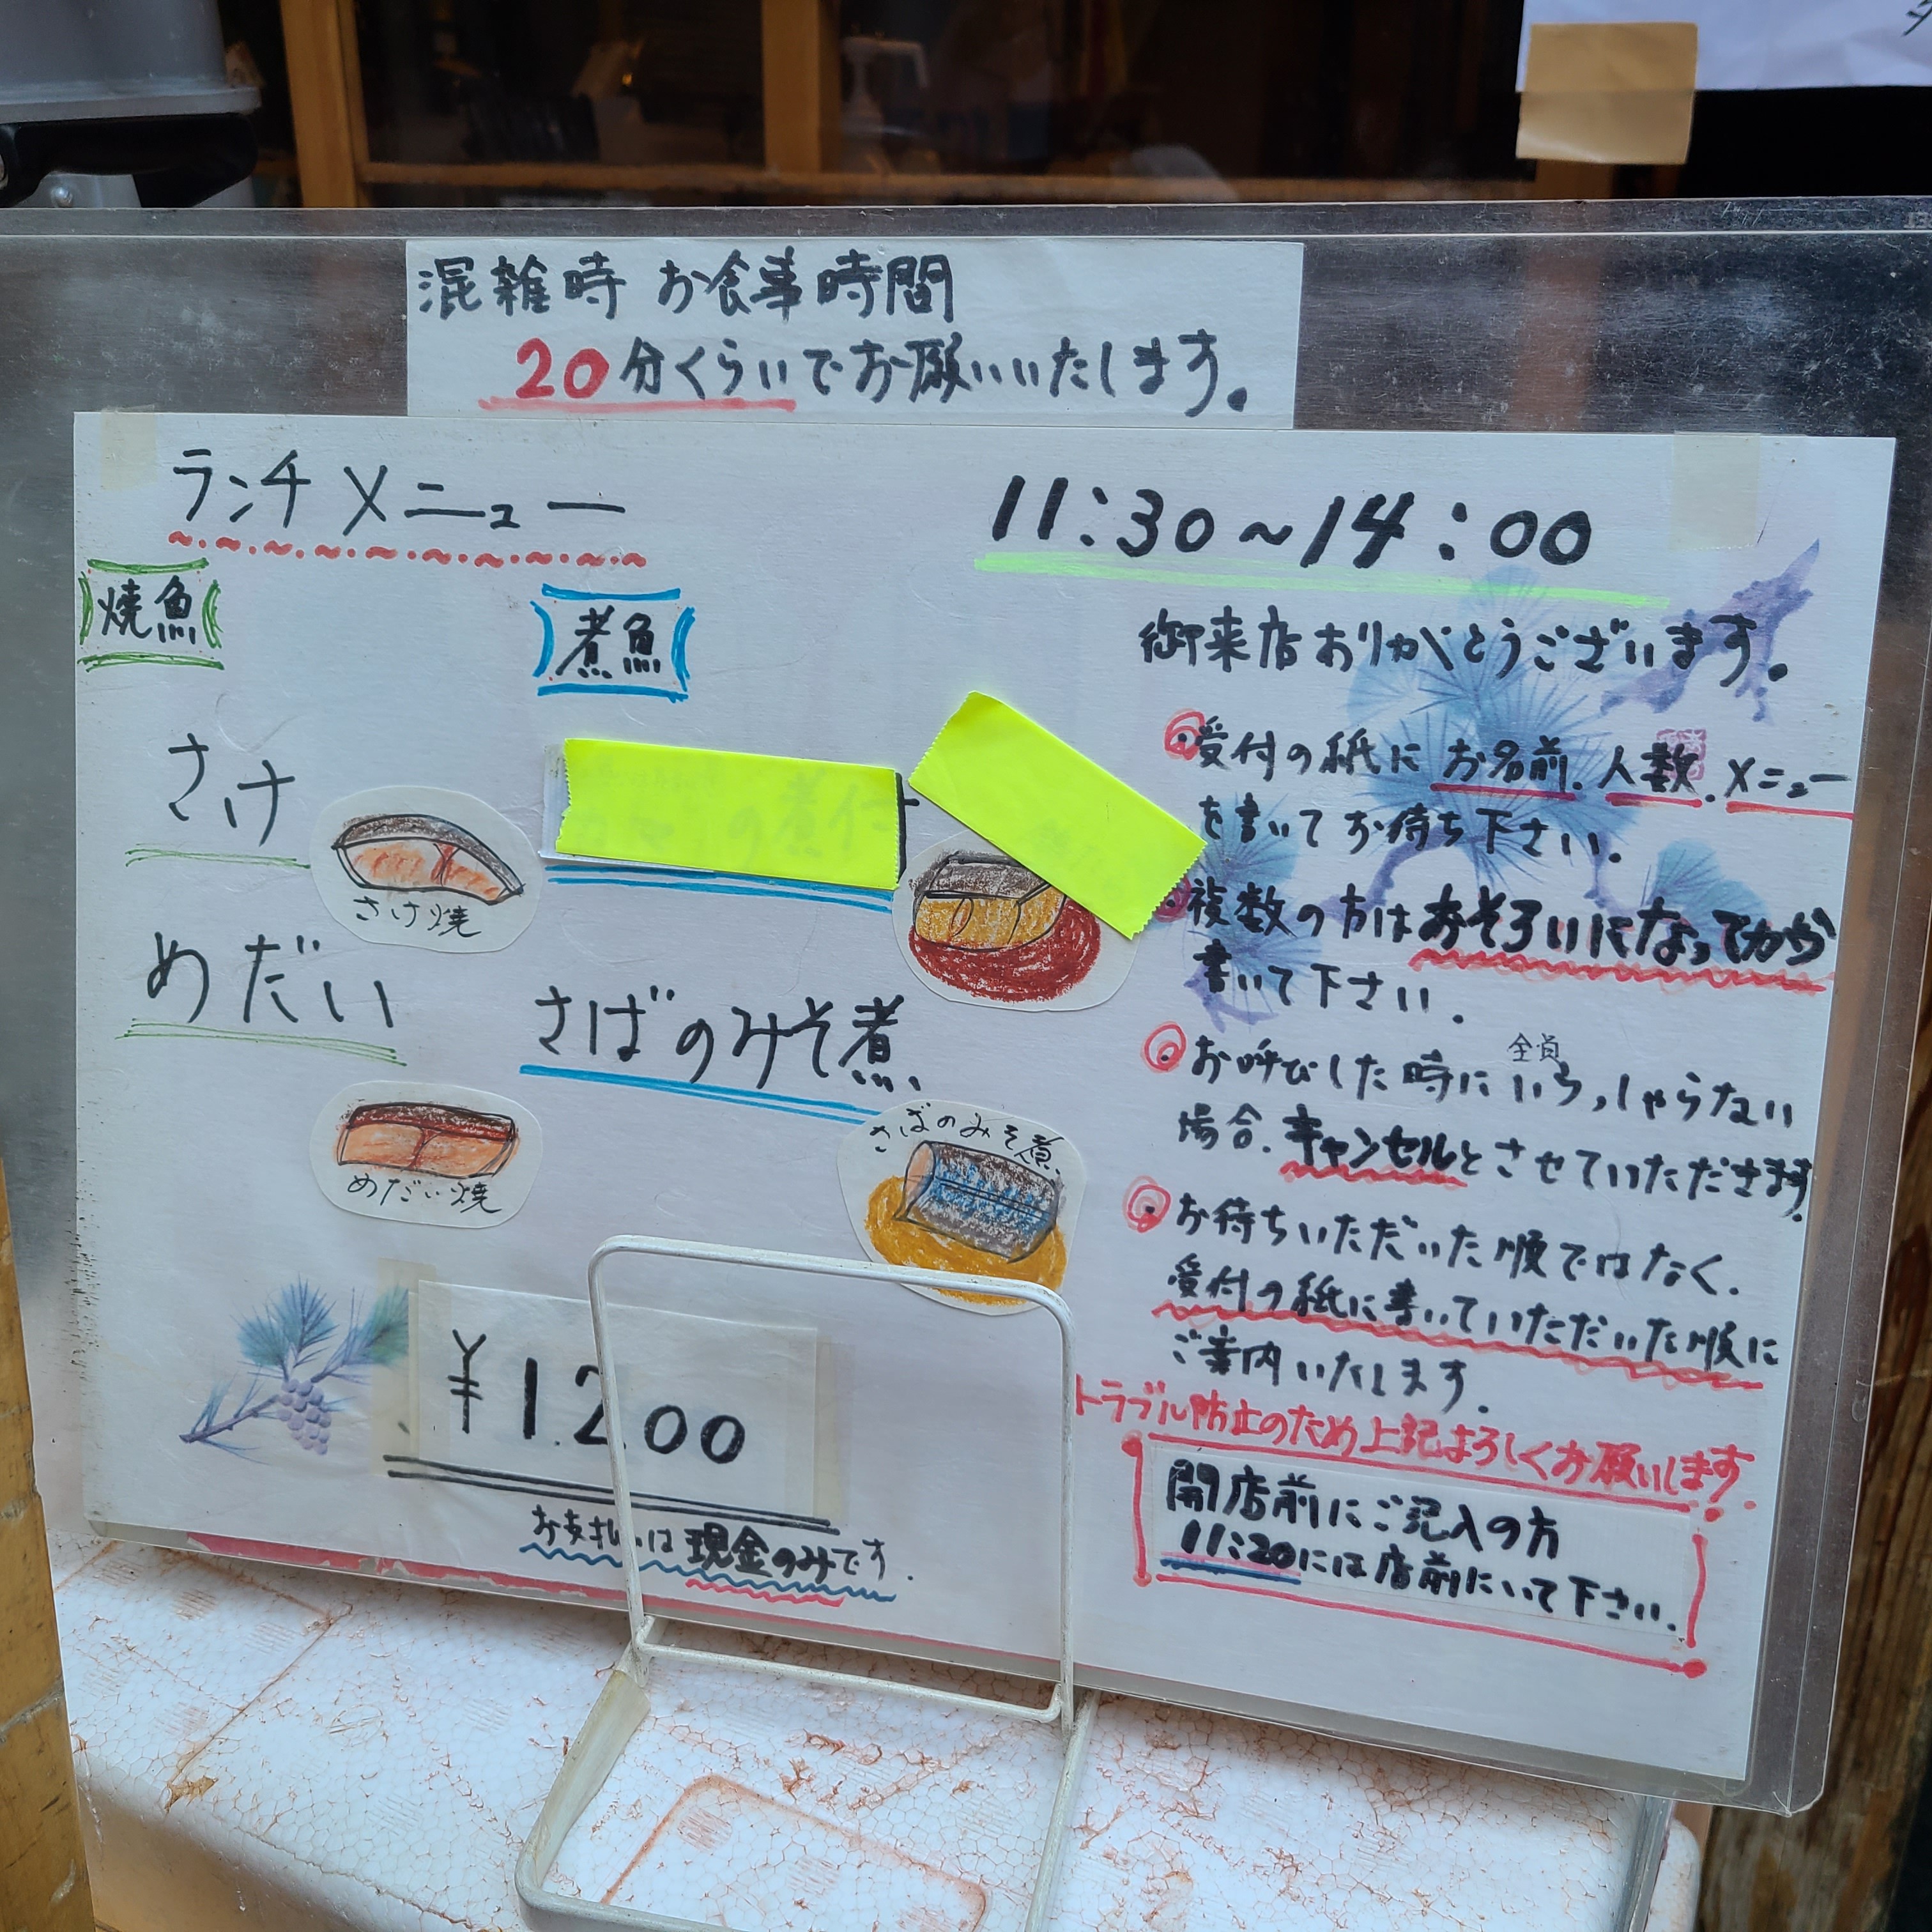 混雑時 お食事時間
20分くらいでお願いいたします。
ランチメニュー
焼魚
煮魚
さけ
さけ焼
めだい
めだい焼
の煮付
さばのみそ煮
さばのみそ煮
¥1.200
お支払いは現金のみです.
11:30~14:00
御来店ありがとうございます.
・受付の紙にお名前.人数.メニュー
を書いてお待ち下さい.
・複数の方はおそろいになってから
書いて下さい.
全員
・お呼びした時にいらっしゃらない
場合.キャンセルとさせていただきます.
・お待ちいただいた順ではなく.
受付の紙に書いていただいた順に
ご案内いたします.
トラブル防止のため上記よろしくお願いします.
開店前にご記入の方
11:20には店前にいて下さい.